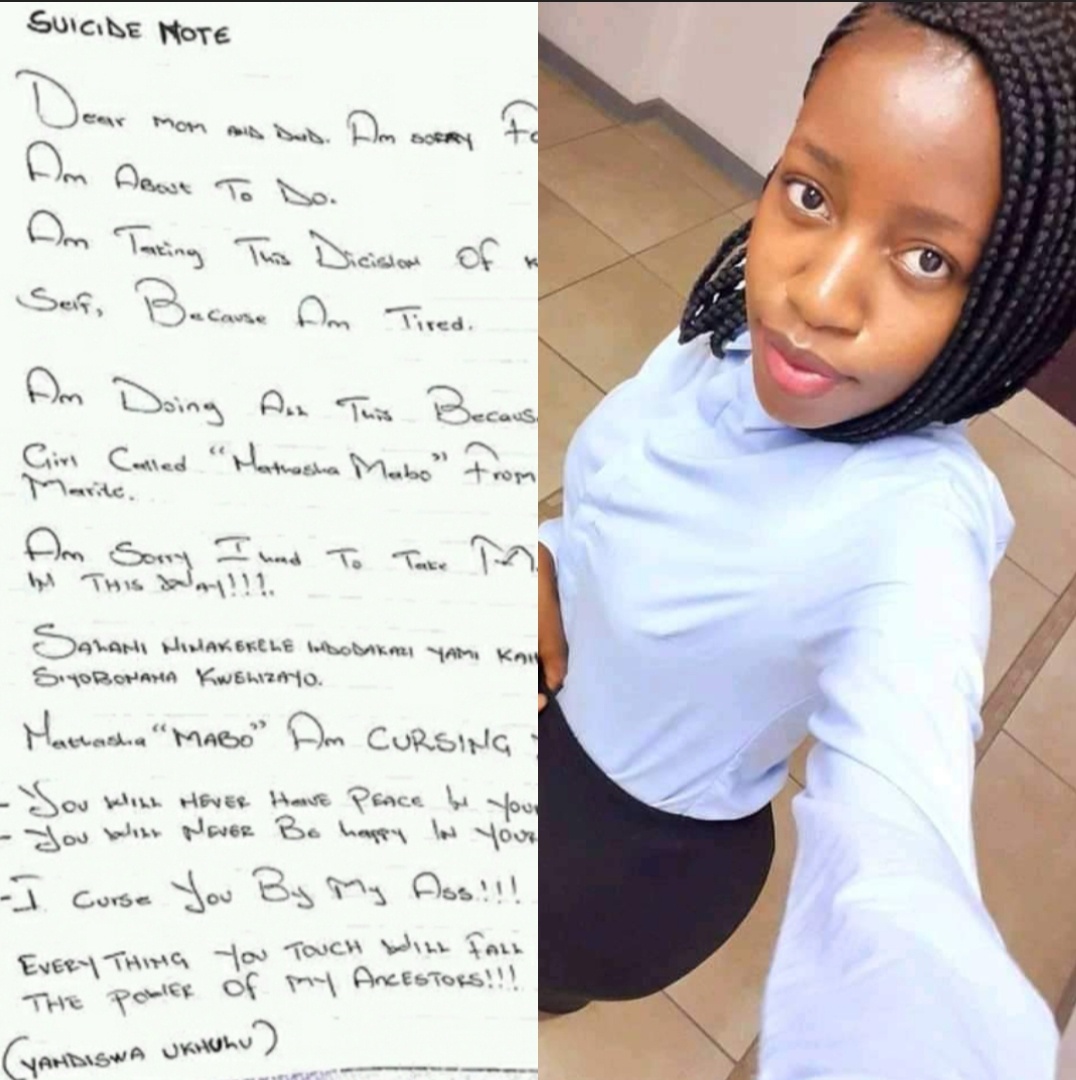 SUICIDE NOTE
Dear mom AND DAD. Am SORRY Fo
Am About To Do.
Am Taking This Dicision Of
Self, Because Am Tired.
Am Doing All This Becaus
Girl Called "Hathasha Mabo" From
Marite.
Am Sorry I had To Take
IN THIS WAY!!!.
SALANI NINAKEKELE INDODAKAZI YAMI
SIYOBONANA KWELIZAYO.
Hathasha "MABO" Am CURSING
- YOU WILL NEVER HAVE PEACE IN YOU
- YOU WILL NEVER BE happy IN YOUR
- I Curse You By My Ass!!!
EVERYTHING YOU TOUCH WILL FALL
THE POWER OF MY ANCESTORS!!!
(YANDISWA UKHULU)